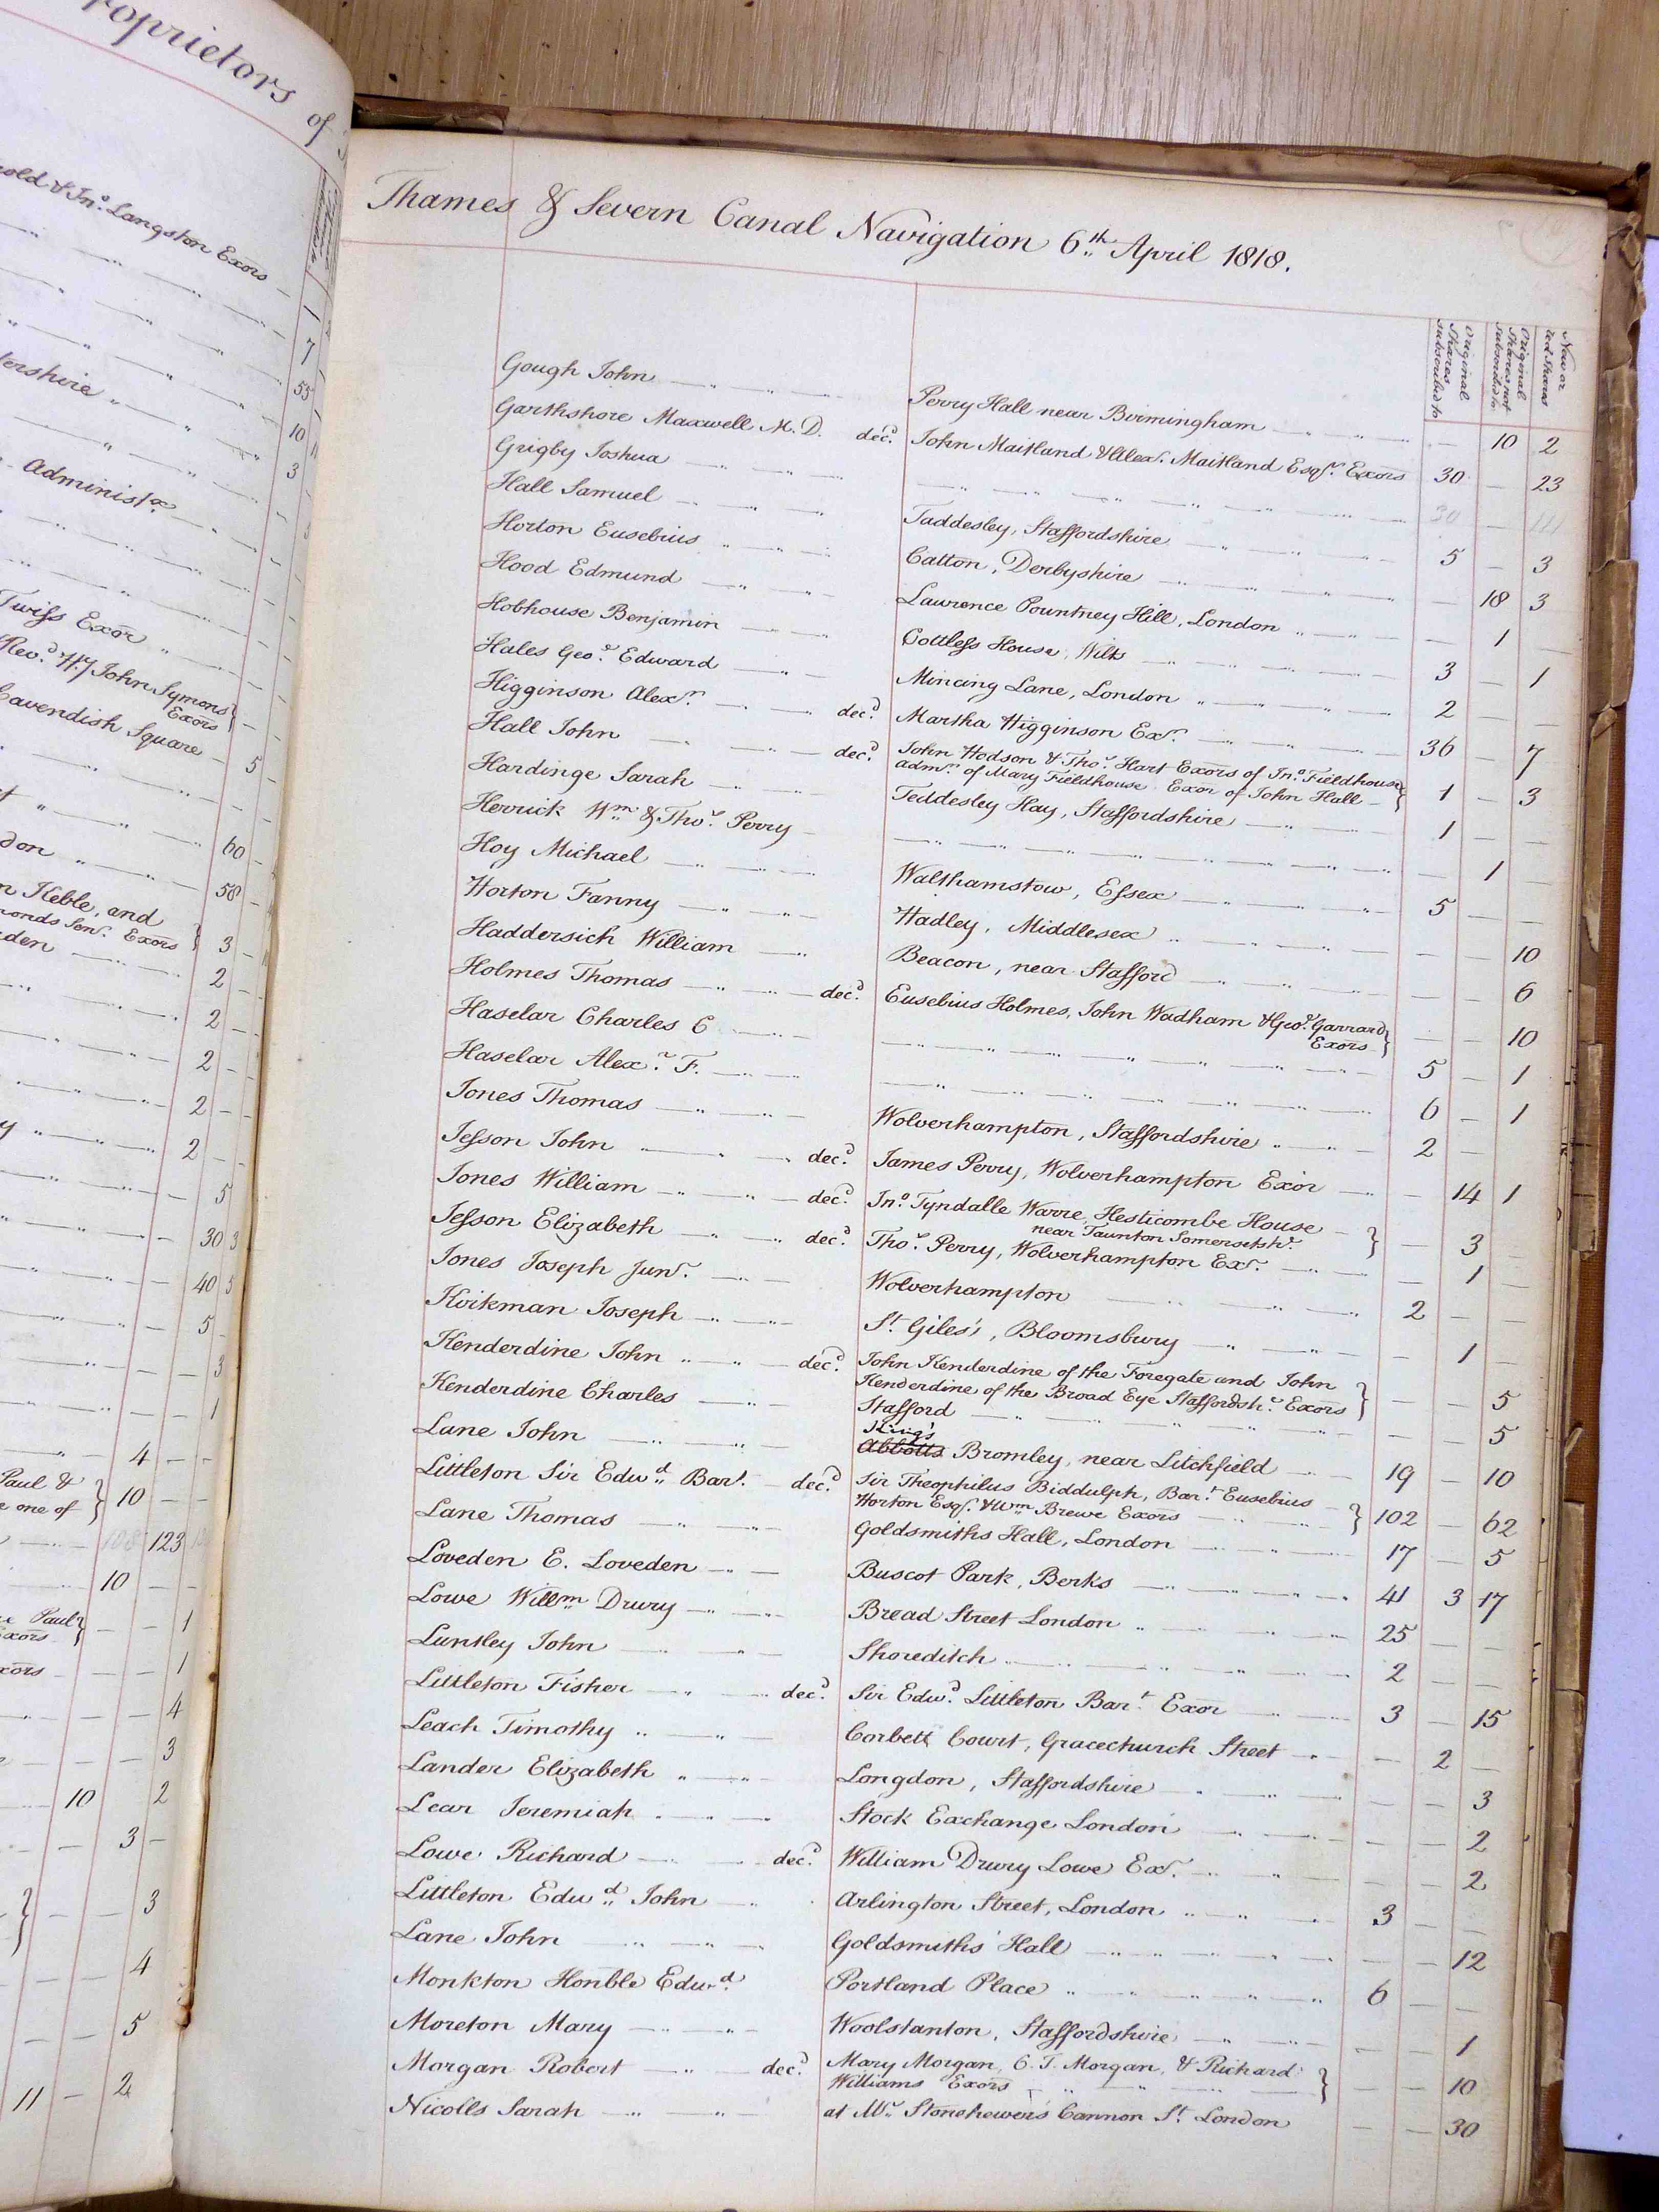 roprietors of
old & Jno. Langston Exors
1
7
55
10
3
ershire
Administx.
Twiss Exor
Revd. Wm John Symons
Exors
Cavendish Square
5
60
don
58
n Keble, and
monds Senr. Exors
3
den
2
2
2
2
2
5
30 3
40
5
3
1
4
Paul &
e one of
10
123
10
Paul
Exors
1
xors
1
4
3
10 2
3
3
4
5
11 2
Thames & Severn Canal Navigation 6th April 1818.
Original Shares subscribed to
Original Shares not subscribed to
New or red Shares
Gough John Perry Hall near Birmingham — 10 2
Garthshore Maxwell M.D. decd. John Maitland & Alexr. Maitland Esqrs. Exors 30 — 23
Grigby Joshua 30 —
Hall Samuel Taddesley, Staffordshire 5 — 3
Horton Eusebius Catton, Derbyshire — 18 3
Hood Edmund Lawrence Pountney Hill, London — 1 —
Hobhouse Benjamin Cottless House, Wilts 3 — 1
Hales Geoe. Edward Mincing Lane, London 2 — —
Higginson Alexr. decd. Martha Higginson Exr. 36 — 7
Hall John decd. John Hodson & Thos. Hart Exors of Jno. Fieldhouse
admr. of Mary Fieldhouse Exor of John Hall 1 — 3
Hardinge Sarah Teddesley Hay, Staffordshire 1 — —
Herrick Wm. & Thos. Perry — 1 —
Hoy Michael Walthamstow, Essex 5 — —
Horton Fanny Hadley, Middlesex — — 10
Haddersich William Beacon, near Stafford — 6
Holmes Thomas decd. Eusebius Holmes, John Wadham & Geoe. Garrard
Exors — — 10
Haselar Charles C 5 — 1
Haselar Alexr. F. 6 — 1
Jones Thomas Wolverhampton, Staffordshire 2 —
Jesson John decd. James Perry, Wolverhampton Exor — 14 1
Jones William decd. Jno. Tyndalle Warre, Hesticombe House
near Taunton Somersetshe. — 3
Jesson Elizabeth decd. Thos. Perry, Wolverhampton Exr. — 1 —
Jones Joseph Junr. Wolverhampton 2 — —
Kirkman Joseph St. Giles's, Bloomsbury — 1 —
Kenderdine John decd. John Kenderdine of the Foregate and John
Kenderdine of the Broad Eye Staffordshe. Exors — — 5
Kenderdine Charles Stafford — — 5
Kings
Lane John Abbotts Bromley, near Litchfield 19 — 10
Littleton Sir Edwd. Bart. decd. Sir Theophilus Biddulph, Bart. Eusebius
Horton Esqr. & Wm. Brewe Exors 102 — 62
Lane Thomas Goldsmiths Hall, London 17 — 5
Loveden E. Loveden Buscot Park, Berks 41 3 17
Lowe Willm. Drury Bread Street London 25 — —
Lunsley John Shoreditch 2 — —
Littleton Fisher decd. Sir Edwd. Littleton Bart. Exor 3 — 15
Leach Timothy Corbett Court, Gracechurch Street — 2 —
Lander Elizabeth Longdon, Staffordshire — — 3
Lear Jeremiah Stock Exchange London — — 2
Lowe Richard decd. William Drury Lowe Exr. — — 2
Littleton Edwd. John Arlington Street, London 3 — —
Lane John Goldsmiths' Hall — — 12
Monkton Honble Edwd. Portland Place 6 — —
Moreton Mary Woolstanton, Staffordshire — — 1
Morgan Robert decd. Mary Morgan, C. T. Morgan, & Richard
Williams Exors — — 10
Nicolls Sarah at Mr. Stonehewers Cannon St. London — — 30